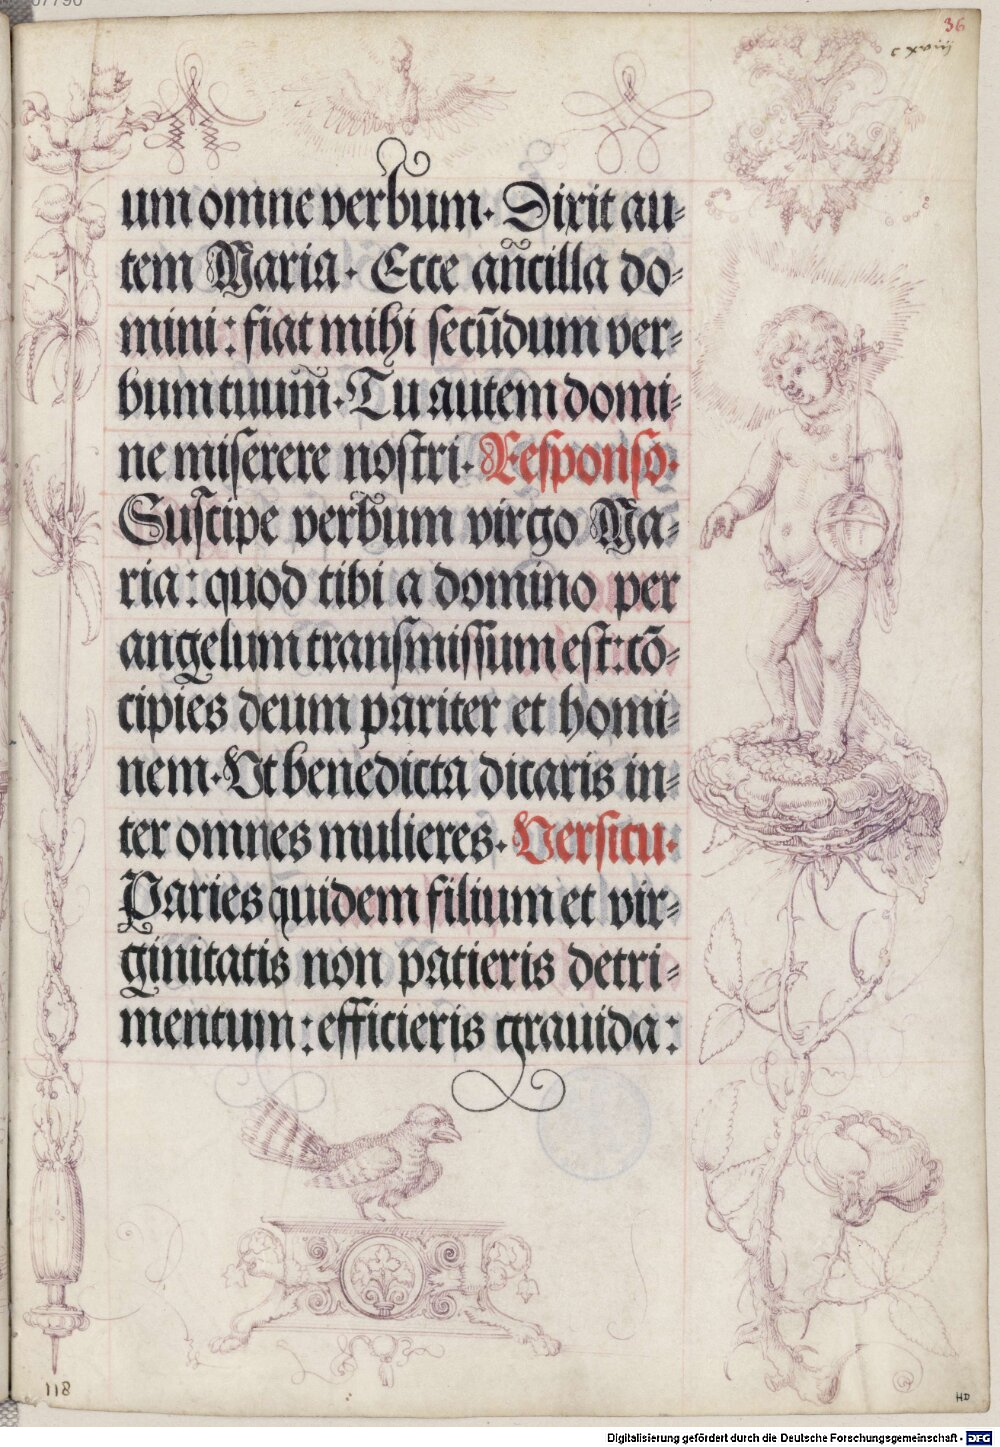 36
c xviij
um omne verbum. Dixit au=
tem Maria. Ecce an̄cilla do=
mini: fiat mihi secūdum ver=
bum tuum̄. Tu autem domi=
ne miserere nostri. Responsō.
Suscipe verbum virgo Ma=
ria: quod tibi a domino per
angelum transmissum est: cō=
cipies deum pariter et homi=
nem. Ut benedicta dicaris in=
ter omnes mulieres. Versicu.
Paries quidem filium et vir=
ginitatis non patieris detri=
mentum: efficieris gravida:
118
HD
Digitalisierung gefördert durch die Deutsche Forschungsgemeinschaft - DFG